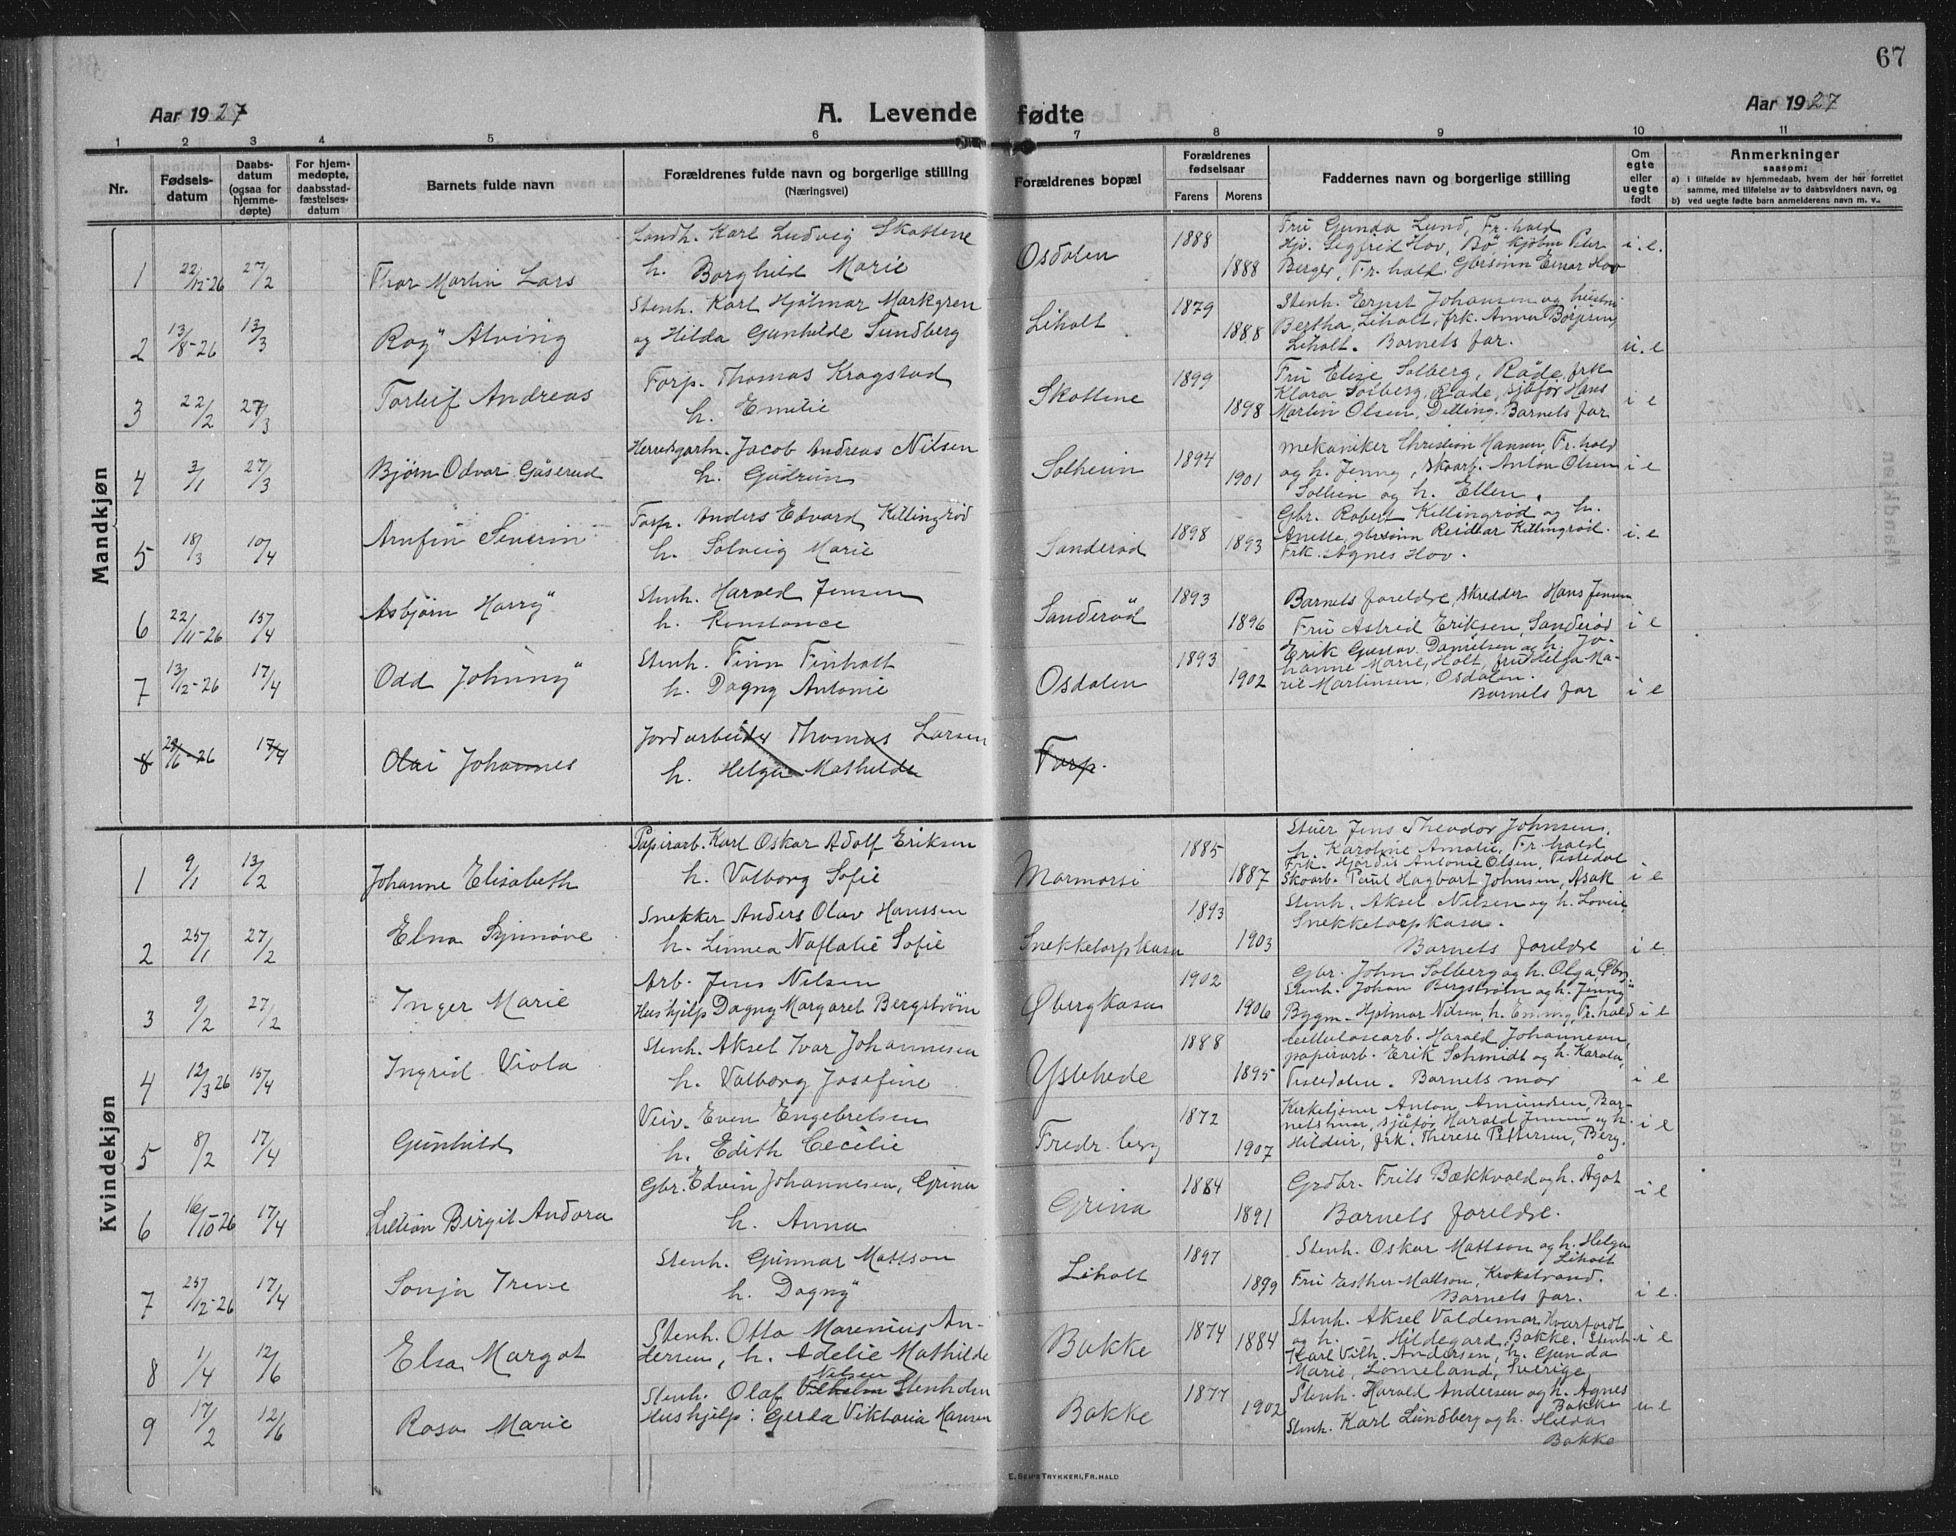 67
Aar 1927
A. Levende fødte
Aar 1927
1 2 3 4 5 6 7 8 9 10 11
Nr.
Fødsels-
datum
Daabs-
datum
(ogsaa for
hjemme-
døpte)
For hjem-
medøpte,
daabsstad-
fæstelses-
datum
Barnets fulde navn
Forældrenes fulde navn og borgerlige stilling
(Næringsvei)
Forældrenes bopæl
Forældrenes
fødselsaar
Farens Morens
Faddernes navn og borgerlige stilling
Om
egte
eller
uegte
født
Anmerkninger
saasom:
a) i tilfælde av hjemmedaab, hvem der har forrettet
samme, med tilføielse av to daabsvidners navn, og
b) ved uegte fødte barn anmelderens navn m. v.
Mandkjøn
1 22/12-26 27/2 Thor Martin Lars
Sandh. Karl Ludvig Skottene
h. Borghild Marie
Osdalen 1888 1888
Fru Gunda Lund, Fr.hald
Hjv. Sigfred Hov, Bö kjöbm Peter
Berger, Fr.hald. Gbrsönn Einar Hov
i. e.
2 13/8-26 13/3 Roy Alving
Stenh. Karl Hjalmar Markgren
og Hilda Gunhilde Sundberg
Liholt 1879 1888
Stenh. Ernst Johansen og hustru
Bertha, Liholt, frk. Anna
Liholt. Barnets far.
u. e
3 22/2 27/3 Torleif Andreas
Torp. Thomas Kragstad
h. Emilie
Skottene 1899 1898
Fru Elise Solberg, Råde, frk
Klara Solberg, Råde, sjåfør Hans
Martin Olsen, Dilling. Barnets far
i e
4 3/1 27/3 Bjørn Odvar Gåserud
Herredsgartn. Jacob Andreas Nilsen
h. Gudrun
Solheim 1894 1901
Mekaniker Christian Hansen, Fr.hald
og h. Jenny, skoarb. Anton Olsen
Solheim og h. Ellen.
i e
5 18/3 10/4 Arnfin Siverin
Torp. Anders Edvard Killingrød
h. Solveig Marie
Sanderød 1898 1893
Gbr. Robert Killingrød og h.
Anette, gbrsönn Reidar Killingrød.
Frk. Agnes Hov.
i. e
6 22/11-26 15/4 Asbjørn Harry
Stenh. Harald Jensen
h. Konstance
Sanderød 1893 1896
Barnets foreldre, skredder Hans Jensen
Fru Astrid Eriksen, Sanderød
i e
7 13/12-26 17/4 Odd Johnny
Stenh. Finn Finholt
h. Dagny Antonie
Osdalen 1893 1902
Erik Gustav Danielsen og h. Jo-
hanne Marie, Holt, fru Helga Ma-
rie Martinsen, Osdalen.
Barnets far
i e
8 29/6-26 17/4 Olai Johannes
Jordarbeider Thomas Larsen
h. Helga Mathilde
Torp.
Kvindekjøn
1 9/1 13/2 Johanne Elisabeth
Papirarb. Karl Oskar Adolf Eriksen
h. Valborg Sofie
Marmorsi 1885 1887
Stuer Jens Theodor Johnsen,
h. Karoline Amalie, Fr.hald
Frk. Hjørdis Antonie Olsen, Tistedal
Skoarb. Paul Hagbart Johnsen, Asak
i e
2 25/1 27/2 Elna Synnøve
Snekker Anders Olav Hanssen
h. Linnea Naftalie Sofie
Snekketorpkasa 1893 1903
Stenh. Aksel Nilsen og h. Lovise,
Snekketorpkasa.
Barnets foreldre
i e
3 9/2 27/2 Inger Marie
Arb. Jens Nilsen
Hushjilp Dagny Margaret Bergstrøm
Øbergkasa 1902 1906
Gbr. John Solberg og h. Olga
Stenh. Johan Bergstrøm og h. Jenny
Bygm. Hjalmar Nilsen, h. Emmy, Fr.hald
i e
4 12/3 26 15/4 Ingrid Viola
Stenh. Aksel Ivar Johannesen
h. Valborg Josefine
Ystehede 1888 1895
Cellulosearb. Harald Johannesen,
papirarb. Erik Schmidt og h. Karola,
Tistedalen. Barnets mor
i e
5 8/2 17/4 Gunhild
Veiv. Even Engebretsen
h. Edith Cecilie
Fredr. berg 1872 1907
Kirketjener Anton Amundsen, Bar-
netshuar, sjåfør Harald Jensen og h.
Hildur, frk. Therese Pettersen, Berg.
i e
6 16/10-26 17/4 Lillian Birgit Andora
Gbr. Edvin Johannesen, Grina
h. Anna
Grina 1884 1891
Grdbr. Frits Bækkvold og h. Ågot
Barnets foreldre.
i e
7 25/12-26 17/4 Sonja Irene
Stenh. Gunnar Mattson
h. Dagny
Liholt 1897 1899
Stenh. Oskar Mattson og h. Helga
Liholt
Fru Esther Mattson, Krokstrand.
Barnets far.
i e.
8 1/4 12/6 Elsa Margot
Stenh. Otto Marenius An-
dersen, h. Adelie Mathilde
Bakke 1874 1884
Stenh. Aksel Valdemar Kvarfordt
og h. Hildegard, Bakke. Stenh.
Karl Vilh. Andersen, h. Gunda
Marie, Lomeland, Sverige
i e
9 17/2 12/6 Rosa Marie
Nilsen
Stenh. Olaf Vilhelm Stenholm
Hushjelp: Gerda Viktoria Hansen
Bakke 1877 1902
Stenh. Harald Andersen og h. Agnes
Bakke
Stenh. Karl Lundberg og h. Hilda
Bakke
u e
E. Sem's Trykkeri, Fr.hald